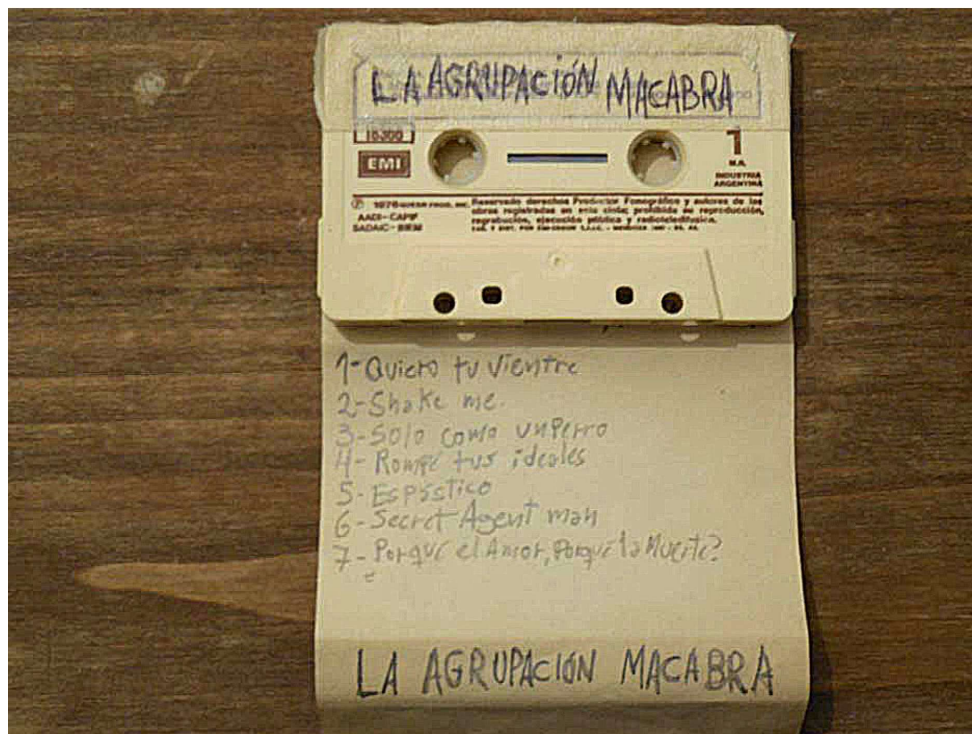 LA AGRUPACIÓN MACABRA
16300
EMI
1
M.A.
INDUSTRIA
ARGENTINA
℗ 1976 INC.
AADI-CAPIF
SADAIC-BIEM
Reservado derechos Productor Fonográfico y autores de las
obras registradas en esta cinta; prohibida su reproducción,
regrabación, ejecución pública y radioteledifusión.
1-Quiero tu vientre
2-Shake me.
3-Solo como un Perro
4-Rompe tus ideales
5-Espástico
6-Secret Agent man
7-Porqué el Amor, Porqué la Muerte?
LA AGRUPACIÓN MACABRA